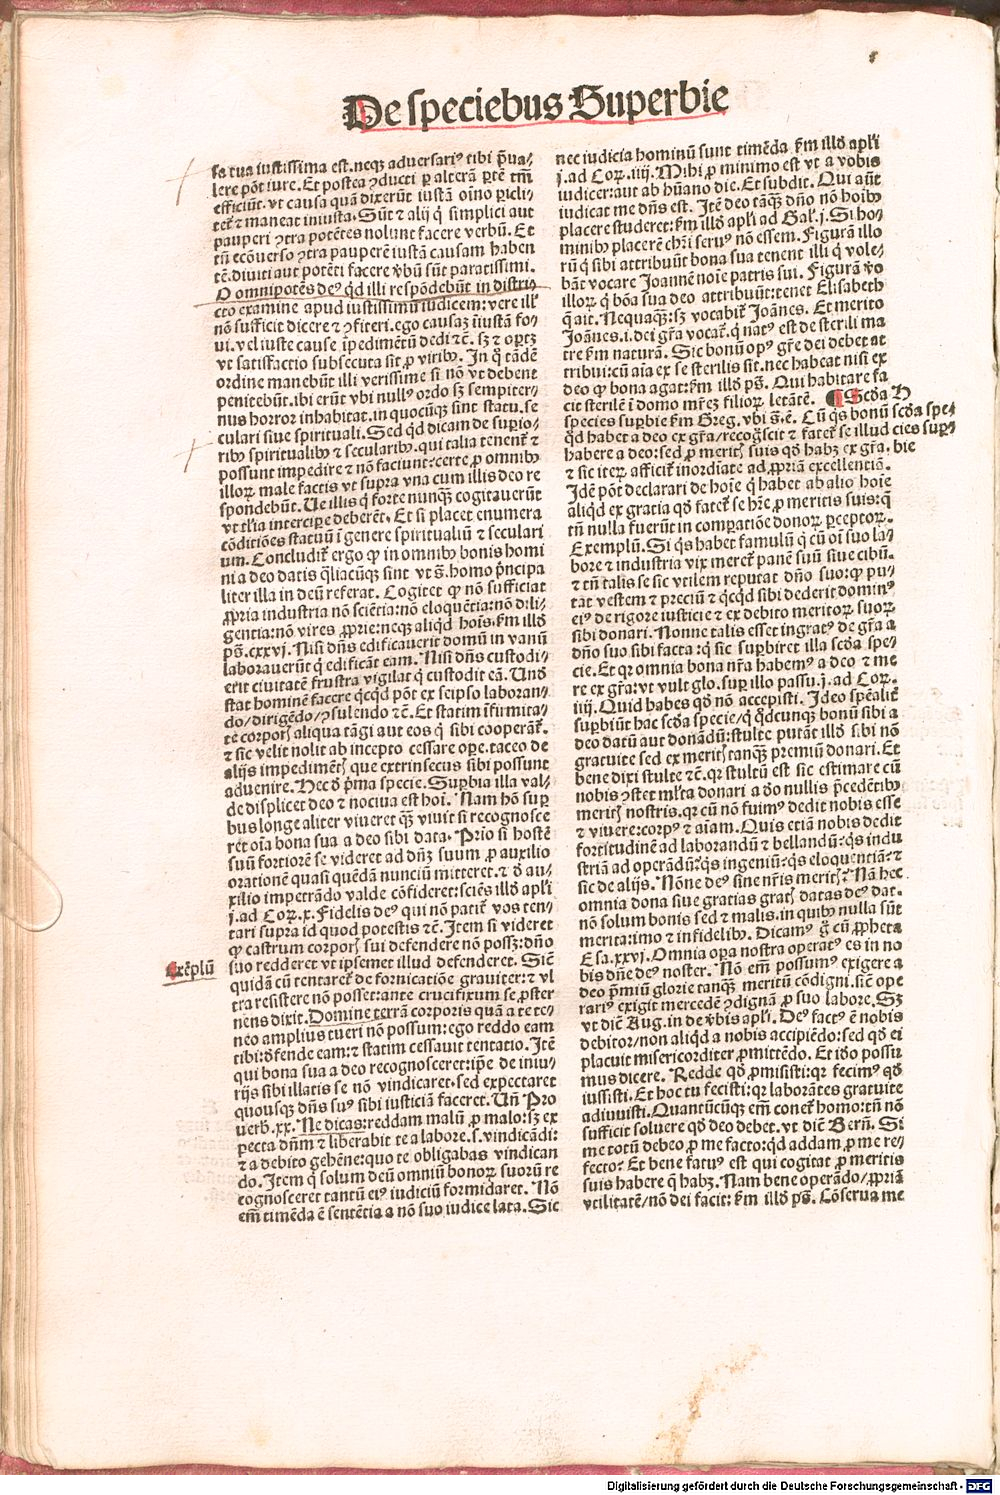 De speciebus Superbie
sa tua iustissima est. neqꝫ adversariꝰ tibi p̄ua⸗
lere põt iure. Et postea ꝯducti ꝑ alterã ꝑtē tm̄
efficiũt. vt causa quã dixerũt iustã oĩno ꝑicli⸗
tet᷑ ⁊ maneat iniusta. Sũt ⁊ alij q̇ simplici aut
pauperi ꝯtra potētes nolunt facere verbũ. Et
tñ ecõuerso ꝯtra pauperē iustã causam haben
tē. diuiti aut potēti facere v̄bũ sũt paratissimi.
O omnipotēs deꝰ qͥd illi respõdebũt in distri⸗
cto examine apud iustissimũ iudicem: vere illꝭ
nõ sufficit dicere ⁊ ꝯfiteri. ego causaꝫ iĩustã fo⸗
ui. vel iuste cause ipedimētũ dedi ⁊c̄. sꝫ ⁊ oportꝫ
vt satisfactio subsecuta sit ꝓ viribꝰ. In q̇ tãdē
ordine manebũt illi verissime si nõ vt debent
penitebũt. ibi erũt vbi nullꝰ ordo sꝫ sempiter⸗
nus horror inhabitat. in quocũqꝫ sint statu. se
culari siue spirituali. Sed qͥd dicam de supꝑio⸗
ribꝰ spiritualibꝰ ⁊ secularibꝰ. qui talia tenent᷑ ⁊
possunt impedire ⁊ nõ faciunt: certe ꝓ omnibꝰ
illoꝝ male factis vt supra vna cum illis deo re
spondebũt. Ue illis q̇ forte nunqꝫ cogitauerũt
vt tl̃ia intercipere deberēt. Et si placet enumera
cõditiões statuũ ĩ genere spiritualiũ ⁊ seculari
um. Concludit᷑ ergo ꝙ in omnibꝰ bonis homi
ni a deo datis q̃liacũqꝫ sint vt s̃. homo p̃ncipa
liter illa in deũ referat. Cogitet ꝙ nõ sufficiat
ꝓpria industria nõ sciētia: nõ eloquētia: nõ dili⸗
gentia: nõ vires ꝓprie: neqꝫ aliqͥd hoĩs. ẜm illđ
pẜ. cxxvj. Nisi dñs edificauerit domũ in vanũ
laborauerũt q̇ edificãt eam. Nisi dñs custodi⸗
erit ciuitatē frustra vigilat q̇ custodit eã. Unđ
stat hominē facere qͥcqͥd põt ex seipso laboran⸗
do/ dirigēdo/ ꝯsulendo ⁊c̄. Et statim ĩfirmita⸗
te corporꝭ aliqua tãgi aut eos q̇ sibi cooperãt᷑.
⁊ sic velit nolit ab incepto cessare ope. taceo de
alijs impedimētꝭ que extrinsecus sibi possunt
aduenire. Hec đ p̃ma specie. Supbia illa val⸗
de displicet deo ⁊ nociua est hoĩ. Nam hõ suꝑ
bus longe aliter viueret qꝫ viuit si recognosce
ret oĩa bona sua a deo sibi data. Prĩo si hostē
suũ fortiorē se videret ad dñꝫ suum ꝓ auxilio
orationē quasi quēdã nunciũ mitteret. ⁊ đ au⸗
xilio impetrãdo valde cõfideret: sciēs illđ apl̃i
j. ad Coꝝ. x. Fidelis deꝰ qui nõ patit᷑ vos ten⸗
tari supra id quod potestis ⁊c̄. Item si videret
ꝙ castrum corporꝭ sui defendere nõ possꝫ: dño
suo redderet vt ipsemet illud defenderet. Sic̃
exēplũ
quidã cũ tentaret᷑ de fornicatiõe grauiter: ⁊ vl
tra resistere nõ posset: ante crucifixum se ꝓster
nens dixit. Domine terrã corporis quã a te te⸗
neo amplius tueri nõ possum: ego reddo eam
tibi: đfende eam: ⁊ statim cessauit tentatio. Itē
qui bona sua a deo recognosceret: ip̃e de iniu⸗
rijs sibi illatis se nõ vindicaret. sed expectaret
quousqꝫ dñs suꝰ sibi iusticiã faceret. Uñ Pro
verb. xx. Ne dicas: reddam malũ ꝓ malo: sꝫ ex
pecta dñm ⁊ liberabit te a labore. s. vindicãdi:
⁊ a debito gehēne: quo te obligabas vindican
do. Item q̇ solum deũ omniũ bonoꝝ suorũ re
cognosceret tantũ eiꝰ iudiciũ formidaret. Nõ
em̃ timēda ē sentētia a nõ suo iudice lata. Sic
nec iudicia hominũ sunt timēda ẜm illđ apl̃i
j. ad Coꝝ. iiij. Mihi ꝓ minimo est vt a vobis
iudicer: aut ab hũano die. Et subdit. Qui aũt
iudicat me dñs est. Itē deo tãqꝫ dño nõ hoĩbꝰ
placere studeret: ẜm illđ apl̃i ad Gal̃. j. Si ho⸗
minibꝰ placerē chr̃i seruꝰ nõ essem. Figurã illo
rũ q̇ sibi attribuũt bona sua tenent illi q̇ vole⸗
bãt vocare Joannē noĩe patris sui. Figurã v̄o
illoꝝ q̇ bõa sua deo attribuũt: tenet Elisabeth
q̃ ait. Nequaqꝫ: sꝫ vocabit᷑ Joãnes. Et merito
Joãnes. i. dei gr̃a vocat᷑. q̇ natꝰ est de sterili ma
tre ẜm naturã. Sic bonũ opꝰ gr̃e dei debet at
tribui: cũ aĩa ex se sterilis sit. nec habeat nisi ex
deo ꝙ bona agat: ẜm illđ pẜ. Qui habitare fa
cit sterilē ĩ domo mr̃eꝫ filioꝝ letãtē. ¶ Scđa
species suꝑbie ẜm Greg. vbi s̃. ē. Cũ qͥs bonũ
Scđa spe⸗
cies suꝑ⸗
bie
qͥd habet a deo ex gr̃a/ recog̃scit ⁊ fatet᷑ se illud
habere a deo: sed ꝓ meritꝭ suis qđ habꝫ ex gr̃a.
⁊ sic iteꝝ afficit᷑ inordĩate ad ꝓpriã excellentiã.
Idē põt declarari de hoĩe q̇ habet ab alio hoĩe
aliqͥd ex gratia qđ fatet᷑ se hr̃e ꝓ meritis suis: q̃
tñ nulla fuerũt in comꝑatiõe donoꝝ ꝑceptoꝝ.
Exemplũ. Si qͥs habet famulũ q̇ cũ oĩ suo la⸗
bore ⁊ industria vix meret᷑ panē suũ siue cibũ.
⁊ tñ talis se sic vtilem reputat dño suo: ꝙ pu⸗
tat vestem ⁊ preciũ ⁊ qͥcqͥd sibi dederit dominꝰ
eiꝰ de rigore iusticie ⁊ ex debito meritoꝝ suoꝝ
sibi donari. Nonne talis esset ingratꝰ de gr̃a a
dño suo sibi facta: q̇ sic suꝑbiret illa scđa spe⸗
cie. Et qꝛ omnia bona nr̃a habemꝰ a deo ⁊ me
re ex gr̃a: vt vult glo. suꝑ illo passu. j. ad Coꝝ.
iiij. Quid habes qđ nõ accepisti. Ideo sp̃ealit᷑
suꝑbiũt hac scđa specie/ q̇ qͥdcunqꝫ bonũ sibi a
deo datũ aut donãdũ: stulte putãt illđ sibi nõ
gratuite sed ex meritꝭ tanqꝫ premiũ donari. Et
bene dixi stulte ⁊c̄. qꝛ stultũ est sic estimare cũ
nobis ꝯstet ml̃ta donari a đo nullis p̄cedētibꝰ
meritꝭ nostris. qꝛ cũ nõ fuimꝰ dedit nobis esse
⁊ viuere: corpꝰ ⁊ aĩam. Quis etiã nobis dedit
fortitudinē ad laborandũ ⁊ bellandũ: qͥs indu
striã ad operãdũ: qͥs ingeniũ: qͥs eloquentiã: ⁊
sic de alijs. Nõne deꝰ sine nr̃is meritꝭ? Nã hec
omnia dona siue gratias gratꝭ datas deꝰ dat.
nõ solum bonis sed ⁊ malis. in quibꝰ nulla sũt
merita: imo ⁊ infidelibꝰ. Dicamꝰ g̃ cũ ꝓpheta
Esa. xxvj. Omnia opa nostra operatꝰ es in no
bis dñe deꝰ noster. Nõ em̃ possumꝰ exigere a
deo p̄miũ glorie tanqꝫ meritũ cõdigni. sic̃ ope
rariꝰ exigit mercedē ꝯdignã ꝓ suo labore. Sꝫ
vt dic̃ Aug. in de v̄bis apl̃i. Deꝰ factꝰ ē nobis
debitor/ non aliqͥd a nobis accipiēdo: sed qđ ei
placuit misericorditer ꝓmittēdo. Et iđo possu
mus dicere. Redde qđ ꝓmisisti: qꝛ fecimꝰ qđ
iussisti. Et hoc tu fecisti: qꝛ laborãtes gratuite
adiuuisti. Quantũcũqꝫ em̃ conet᷑ homo: tñ nõ
sufficit soluere qđ deo debet. vt dic̃ Berñ. Si
me totũ debeo ꝓ me facto: qͥd addam ꝓ me re⸗
fecto? Et bene fatuꝰ est qui cogitat ꝓ meritis
suis habere q̇ habꝫ. Nam bene operãdo/ ꝓpriã
vtilitatē/ nõ dei facit: ẜm illđ pẜ. Cõserua me
Digitalisierung gefördert durch die Deutsche Forschungsgemeinschaft - DFG